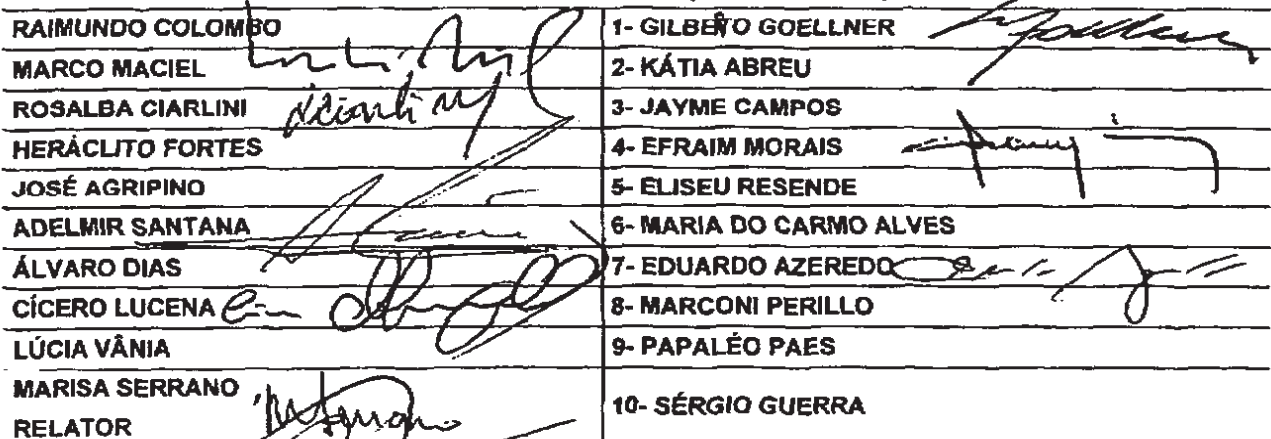 RAIMUNDO COLOMBO
1- GILBERTO GOELLNER
MARCO MACIEL
2- KÁTIA ABREU
ROSALBA CIARLINI
3- JAYME CAMPOS
HERÁCLITO FORTES
4- EFRAIM MORAIS
JOSÉ AGRIPINO
5- ELISEU RESENDE
ADELMIR SANTANA
6- MARIA DO CARMO ALVES
ÁLVARO DIAS
7- EDUARDO AZEREDO
CÍCERO LUCENA
8- MARCONI PERILLO
LÚCIA VÂNIA
9- PAPALÉO PAES
MARISA SERRANO
RELATOR
10- SÉRGIO GUERRA